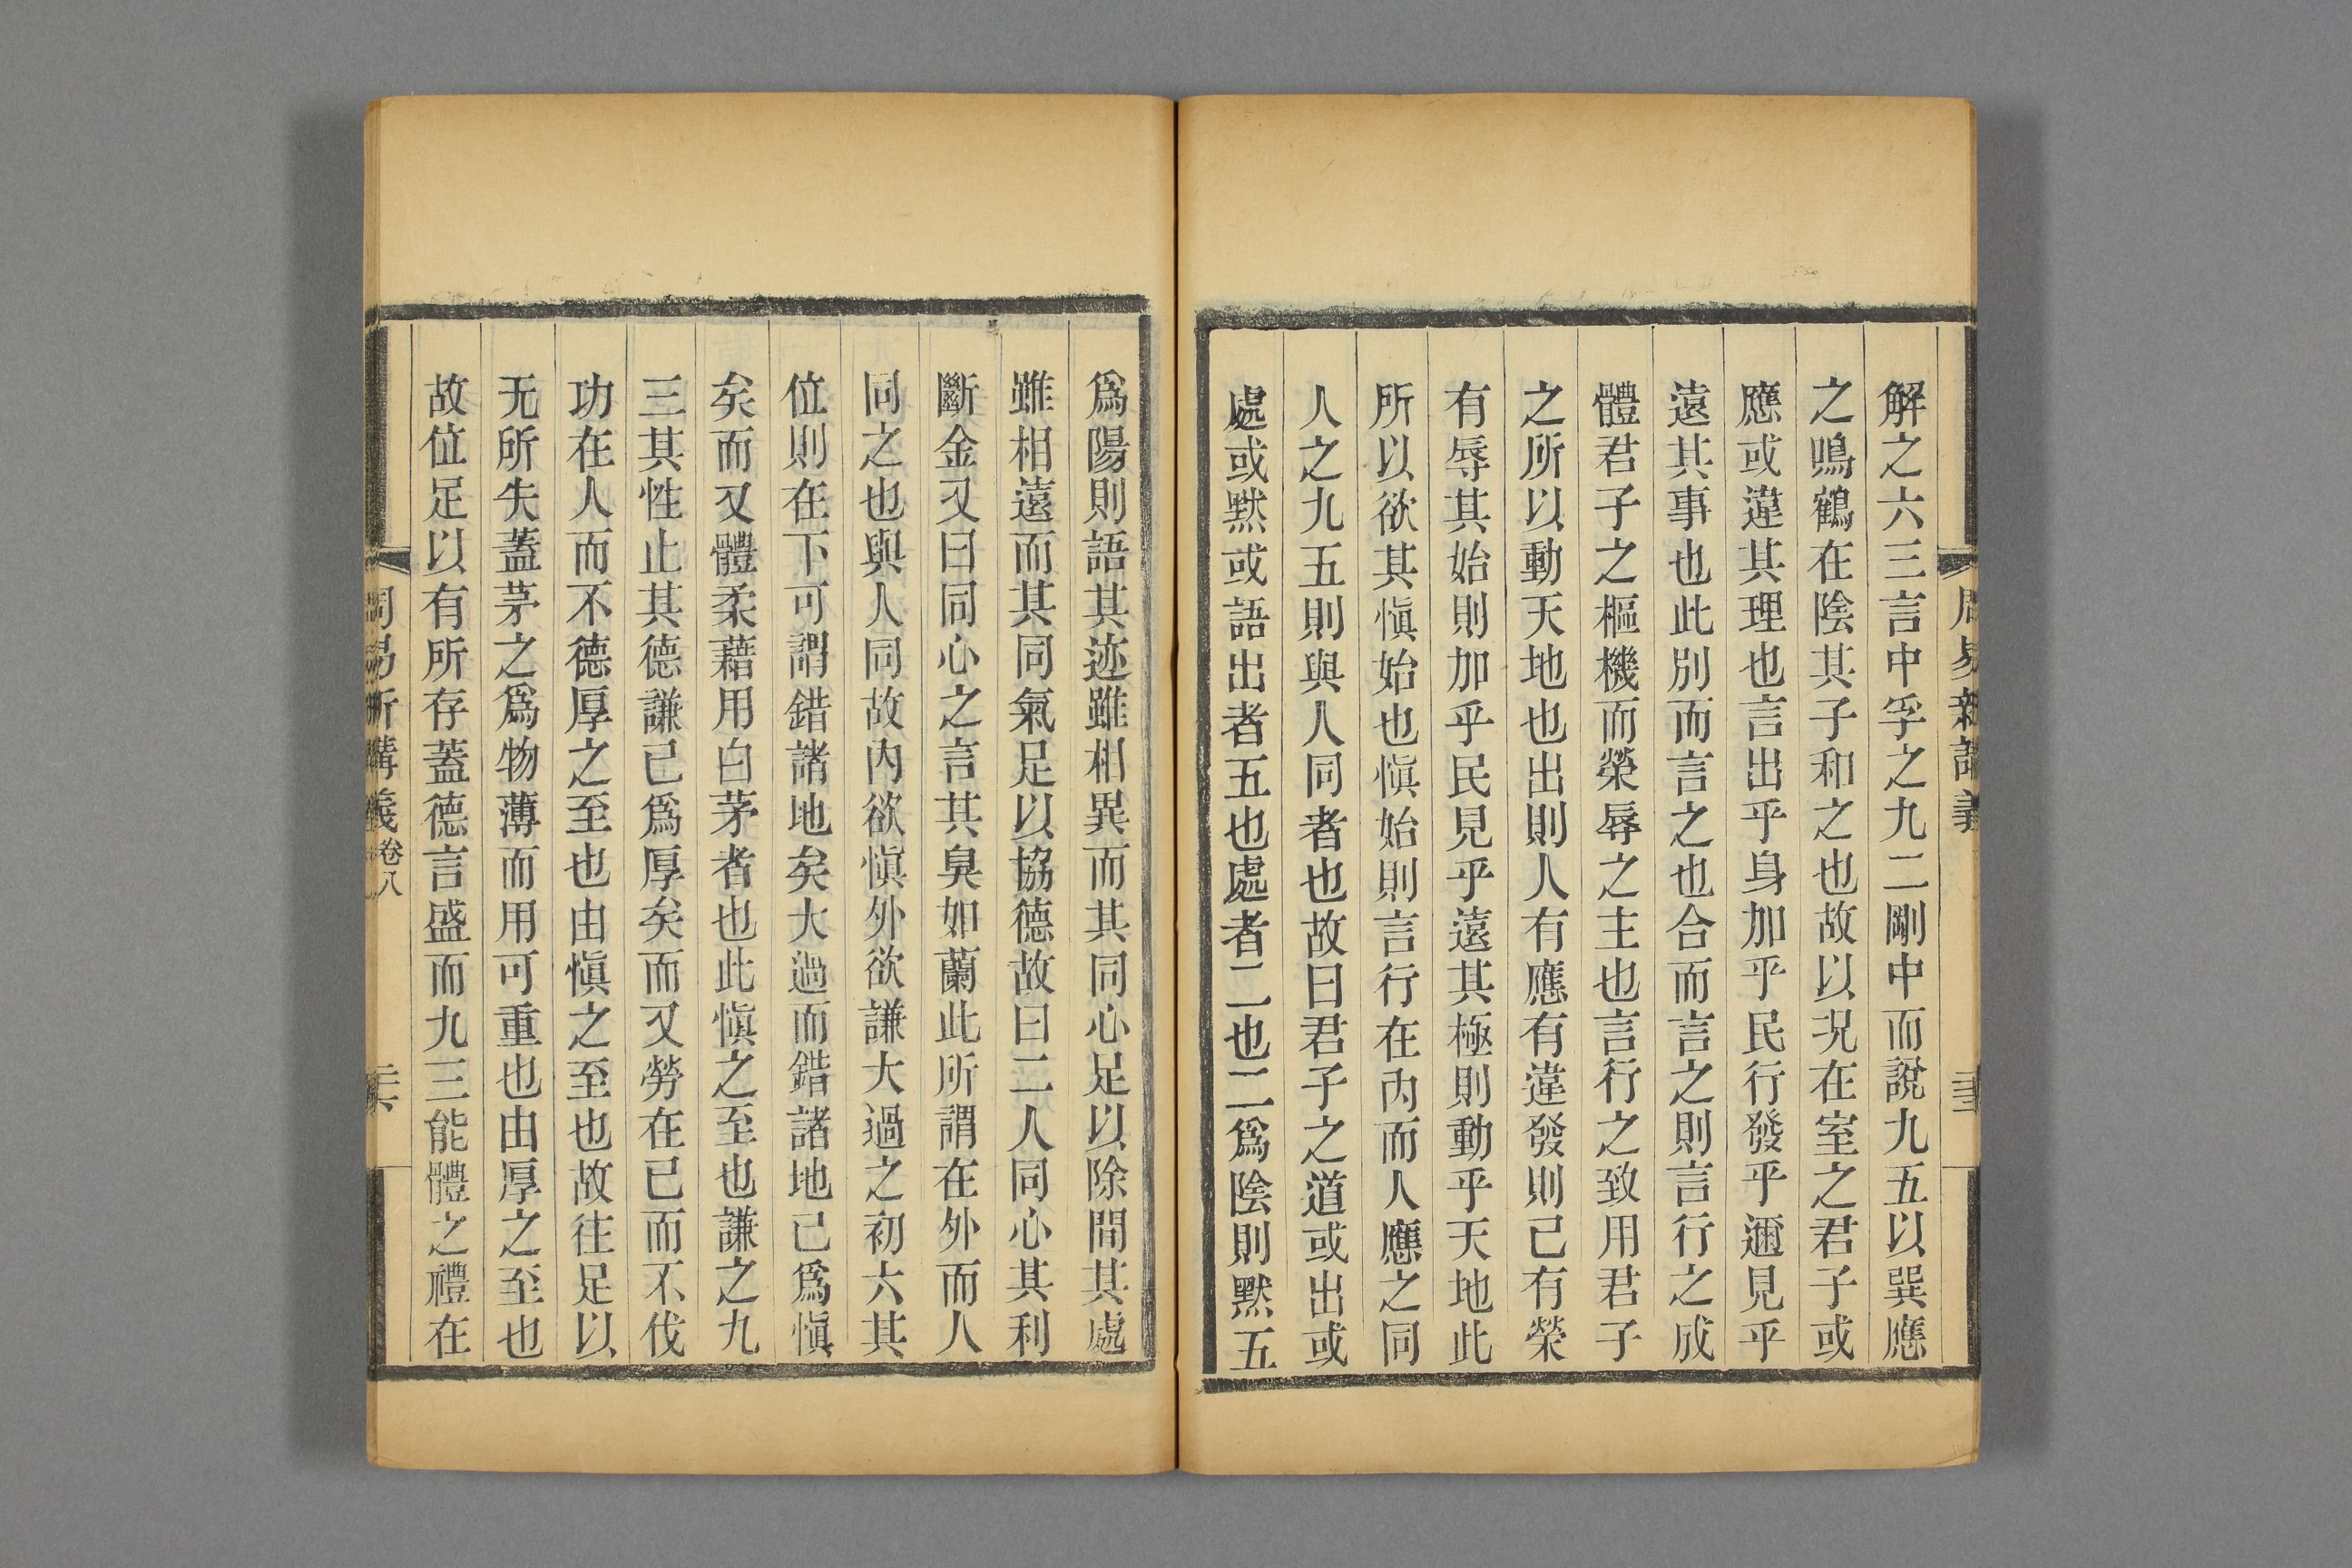 周易新講義
解之六三言中孚之九二剛中而說九五以巽應
之鳴鶴在陰其子和之也故以況在室之君子或
應或違其理也言出乎身加乎民行發乎邇見乎
遠其事也此別而言之也合而言之則言行之成
體君子之樞機而榮辱之主也言行之致用君子
之所以動天地也出則人有應有違發則己有榮
有辱其始則加乎民見乎遠其極則動乎天地此
所以欲其愼始也愼始則言行在內而人應之同
人之九五則與人同者也故曰君子之道或出或
處或默或語出者五也處者二也二爲陰則默五
爲陽則語其迹雖相異而其同心足以除間其處
雖相遠而其同氣足以協德故曰二人同心其利
斷金又曰同心之言其臭如蘭此所謂在外而人
同之也與人同故內欲愼外欲謙大過之初六其
位則在下可謂錯諸地矣大過而錯諸地已爲愼
矣而又體柔藉用白茅者也此愼之至也謙之九
三其性止其德謙已爲厚矣而又勞在已而不伐
功在人而不德厚之至也由愼之至也故往足以
无所失蓋茅之爲物薄而用可重也由厚之至也
故位足以有所存蓋德言盛而九三能體之禮在
周易新講義 卷八